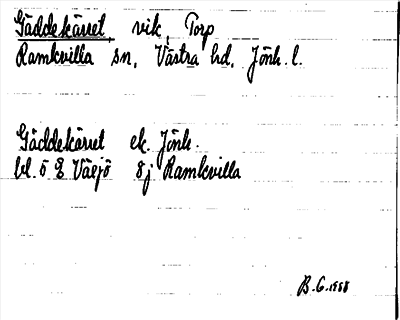 Gäddekärret, vik, Torp
Ramkvilla sn, Västra hd, Jönk. l.
Gäddekärret ek. Jönk.
bl. ö Växjö 8j Ramkvilla
B.G. 1958